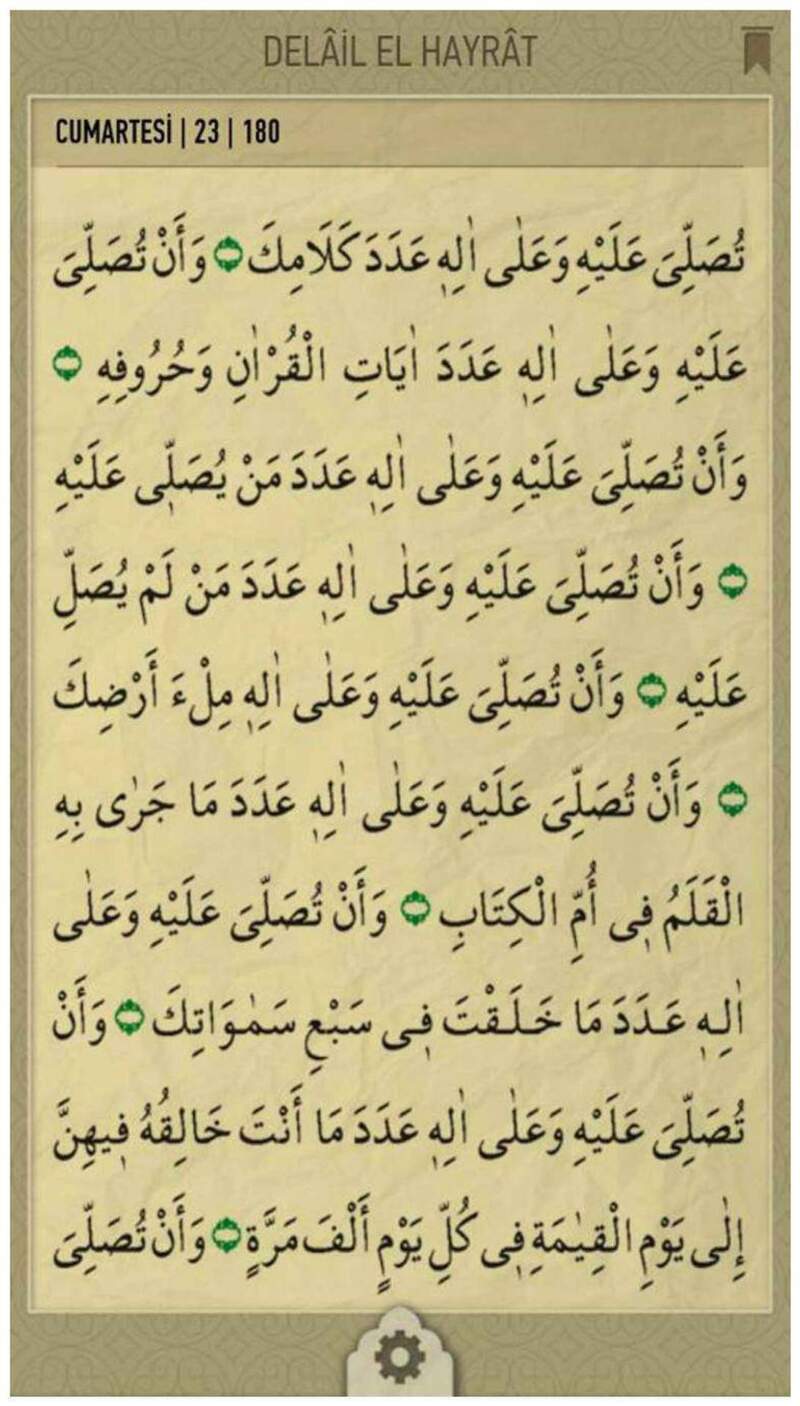 DELÂİL EL HAYRÂT
CUMARTESİ | 23 | 180
تُصَلِّىَ عَلَيْهِ وَعَلٰى اٰلِهٖ عَدَدَ كَلَامِكَ وَأَنْ تُصَلِّىَ
عَلَيْهِ وَعَلٰى اٰلِهٖ عَدَدَ اٰيَاتِ الْقُرْاٰنِ وَحُرُوفِهٖ
وَأَنْ تُصَلِّىَ عَلَيْهِ وَعَلٰى اٰلِهٖ عَدَدَ مَنْ يُصَلّٖى عَلَيْهِ
وَأَنْ تُصَلِّىَ عَلَيْهِ وَعَلٰى اٰلِهٖ عَدَدَ مَنْ لَمْ يُصَلِّ
عَلَيْهِ وَأَنْ تُصَلِّىَ عَلَيْهِ وَعَلٰى اٰلِهٖ مِلْءَ أَرْضِكَ
وَأَنْ تُصَلِّىَ عَلَيْهِ وَعَلٰى اٰلِهٖ عَدَدَ مَا جَرٰى بِهِ
الْقَلَمُ فٖى أُمِّ الْكِتَابِ وَأَنْ تُصَلِّىَ عَلَيْهِ وَعَلٰى
اٰلِهٖ عَدَدَ مَا خَلَقْتَ فٖى سَبْعِ سَمٰوَاتِكَ وَأَنْ
تُصَلِّىَ عَلَيْهِ وَعَلٰى اٰلِهٖ عَدَدَ مَا أَنْتَ خَالِقُهُ فٖيهِنَّ
إِلٰى يَوْمِ الْقِيٰمَةِ فٖى كُلِّ يَوْمٍ أَلْفَ مَرَّةٍ وَأَنْ تُصَلِّىَ